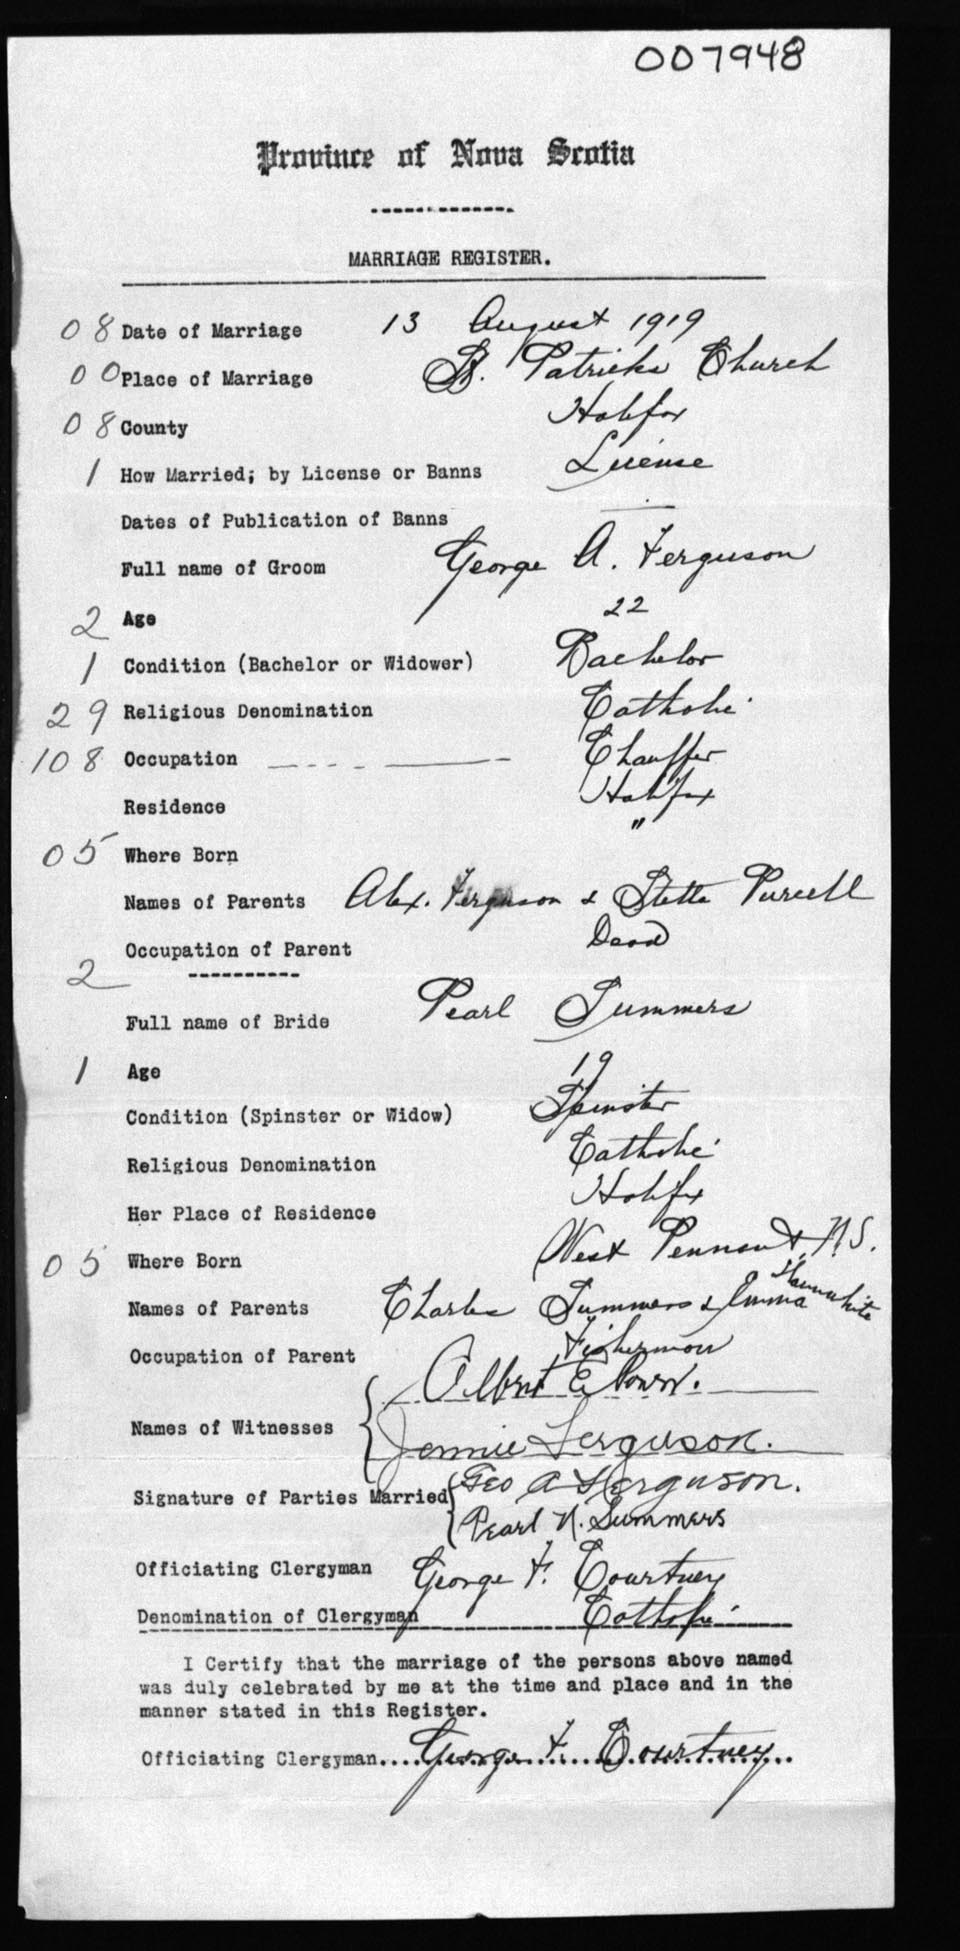 007948
Province of Nova Scotia
MARRIAGE REGISTER.
08 Date of Marriage 13 August 1919
00 Place of Marriage St. Patricks Church
08 County Halifax
1 How Married; by License or Banns License
Dates of Publication of Banns —
Full name of Groom George A. Ferguson
2 Age 22
1 Condition (Bachelor or Widower) Bachelor
29 Religious Denomination Catholic
108 Occupation Chauffer
Residence Halifax
05 Where Born "
Names of Parents Alex. Ferguson & Stella Purcell
Occupation of Parent Dead
2
Full name of Bride Pearl Summers
1 Age 19
Condition (Spinster or Widow) Spinster
Religious Denomination Catholic
Her Place of Residence Halifax
05 Where Born West Pennant, N.S.
Names of Parents Charles Summers & Emma
Occupation of Parent Fisherman
Names of Witnesses { Albert E.
Jennie Ferguson.
Signature of Parties Married { Geo A Ferguson.
Pearl N. Summers
Officiating Clergyman George F. Courtney
Denomination of Clergyman Catholic
I Certify that the marriage of the persons above named
was duly celebrated by me at the time and place and in the
manner stated in this Register.
Officiating Clergyman....George F. Courtney